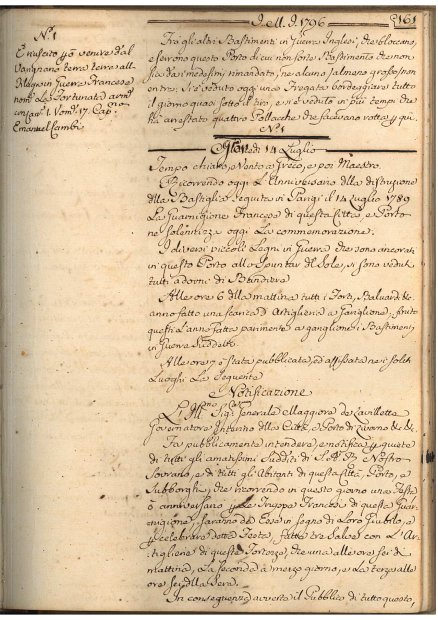 N.º 1
È riuscito di venire dal
Varignano terra terra all.
in Guerra Francese
nom.ª La Fortunata arm.ª
un can.e 1. Uom. 17. Cap.no
Emanuel Cambi
D. M. D. 1796
161
Fra gli altri Bastimenti in Guerra Inglesi, che bloccano,
e serrono questo Porto di cui non sorte Bastimento che non
sia da' medesimi rimandato, ne alcuno almeno grosso non
entra; Si è veduto oggi una Fregata bordeggiare tutto
il giorno quasi sotto il tiro, e si è veduto in più tempi che
ha arrestato quattro Pollacche che facevano rotta p qui.
N.º 1
Giov.di 14 Luglio
Tempo chiaro, e Vento a Greco, e poi Maestro
Ricorrendo oggi L'Anniversario della distruzione
della Bastiglia seguita in Parigi il 14 Luglio 1789
La Guarnigione Francese di questa Città, e Porto
ne solennizza oggi La commemorazione.
I diversi piccoli Legni in Guerra che sono ancorati
in questo Porto allo spuntar del Sole, si sono veduti
tutti adorni di Bandiera
Alle ore 6 della mattina tutti i Forti, Baluardi &c.
anno fatto una scarica d'Artiglieria a Ganglione,
quest'anno fatta parimente a ganglione i Bastimenti
in Guerra Suddetti.
Alle ore 7 è stata pubblicata, ed affissata nei soliti
Luoghi La seguente
Notificazione
L'Ill.mo Sig.re Generale Maggiore de Lavillette
Governatore Interino della Città, e Porto di Livorno &c. &c.
Fa pubblicamente intendere, e notifica p quiete
di tutti gli amatissimi Sudditi di S. A. R. Nostro
Sovrano, e di tutti gli Abitanti di questa Città, Porto, e
Subborghi, che ricorrendo in questo giorno una Festa
o anniversario p Le Truppe Francesi di questa Guar-
nigione, saranno da Esse in segno di Loro Giubilo, e
p celebrare detta Festa, fatte tre Salve con L'Ar-
tiglierie di questa Fortezza, che una alle ore sei di
mattina, La seconda a mezzo giorno, e La terza alle
ore sei della Sera.
In conseguenza avverte il Pubblico di tutto questo,